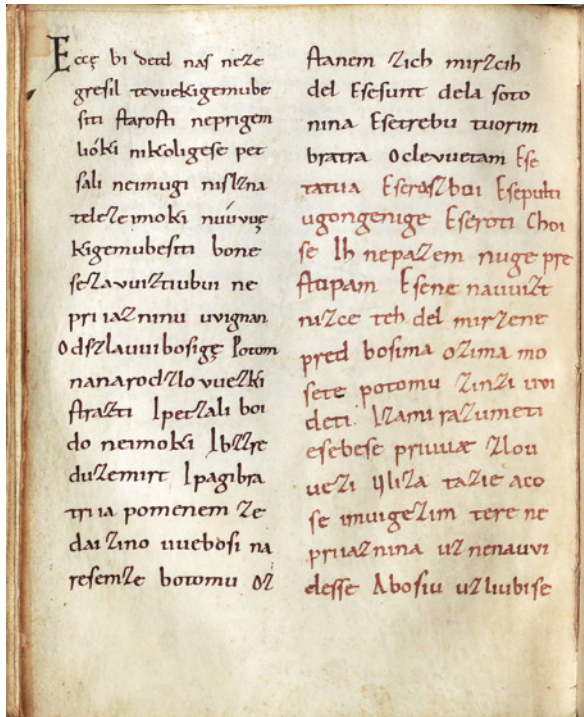 Eccę bi detd naſ neze
greſil tevuekigemube
ſiti ſtaroſti neprigem
lióki nikoligeſe pet
ſali neimugi niſlzna
teleze imoki nuúvuę
kigemubeſiti bone
ſezavuiztiubui ne
pri iazninu uvignan
Odſzlauui boſigę Potom
nanarodzlovuezki
ſtrazti Ipetzali boi
do neimoki Ibzzre
duzemirt Ipagibra
tri ia pomenem ze
dai zino uuebóſi na
reſemze botomu oz
ſtanem zich mirzcih
del Eſeſunt dela ſoto
nina Eſetrebu tuorim
bratra Oclevuetam Eſe
tatua Eſeraſzboi Eſepulti
ugongenige Eſeroti Choi
ſe Ih nepazem nuge pre
ſtopam Eſene nauuizt
nizce teh del mirzene
pred boſima ozima mo
ſete potomu zinzi uvi
deti Izami razumeti
eſebeſe priuuæ zlou
uezi Uliza tazie aco
ſe imuigezim tere ne
priiaznina uz nenauvi
deſſe A boſiu uzliubiſe